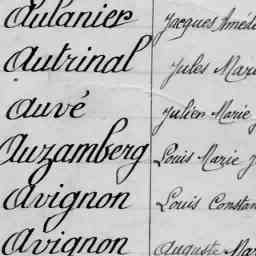 Aulanier Jacques Améd
Autrinal Jules Mari
Auvé Julien Marie J
Auzamberg Louis Marie J
Avignon Louis Constan
Avignon Auguste Mar